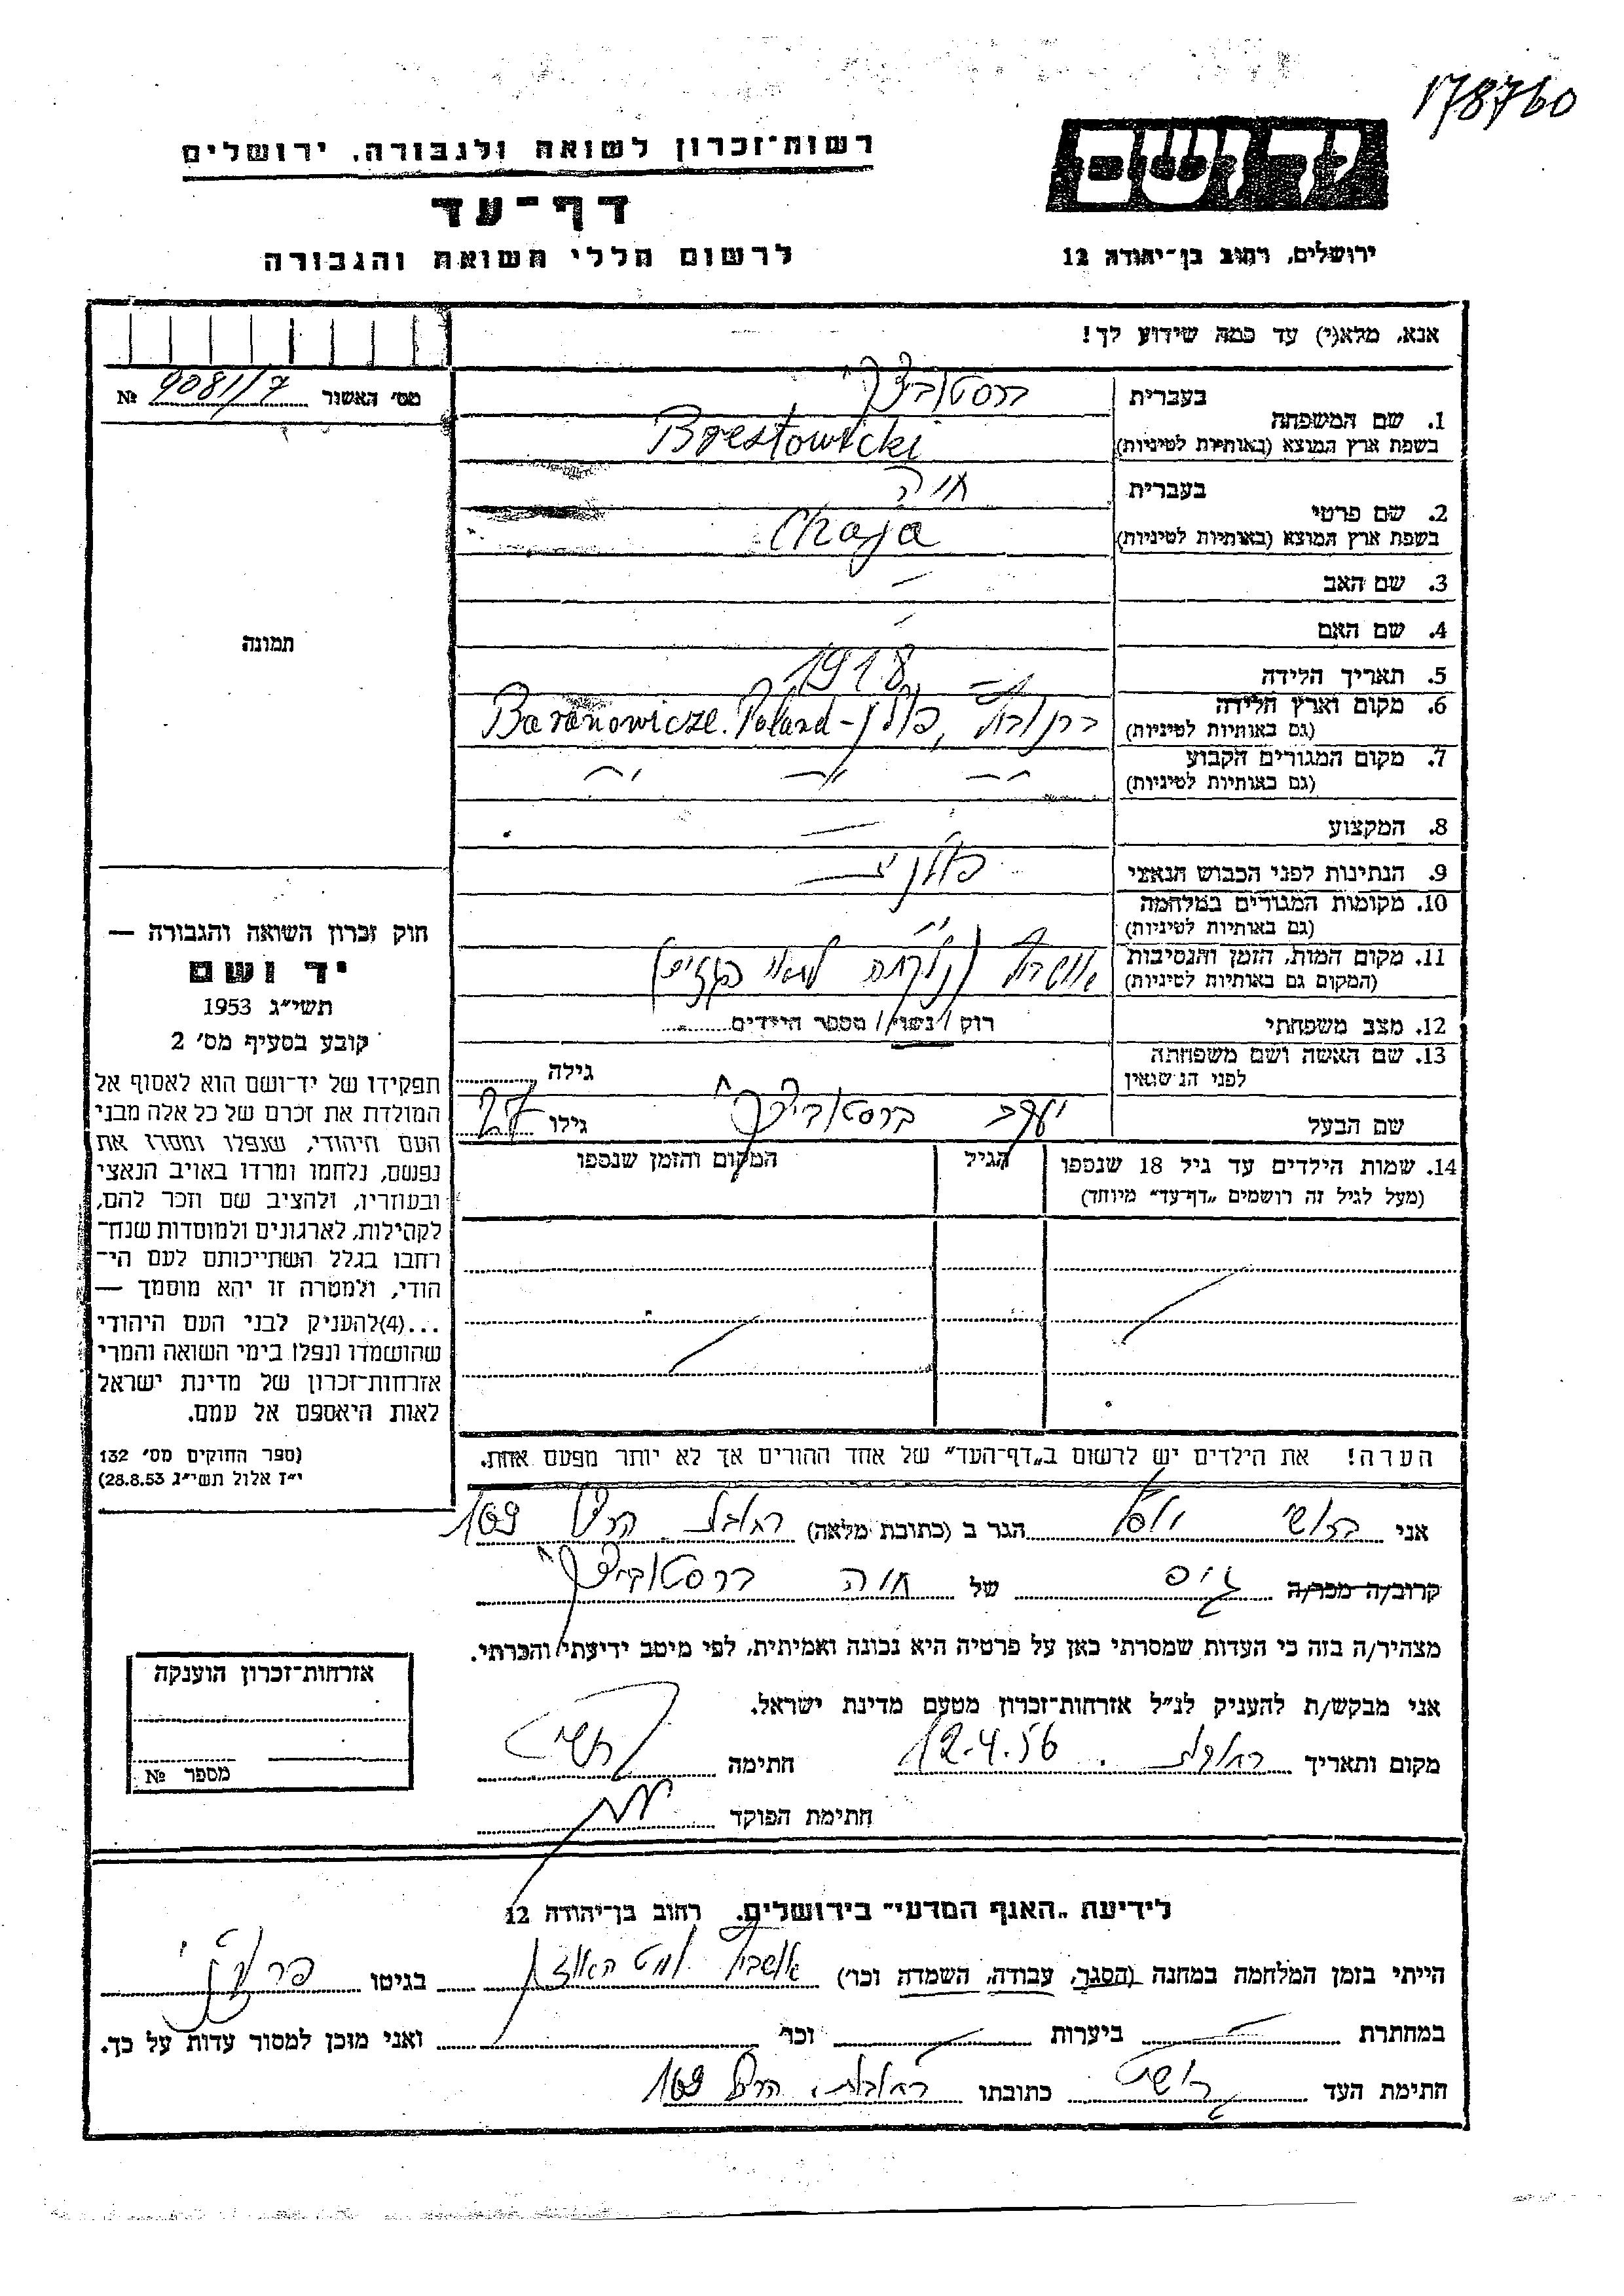 178760
יד ושם
רשות־זכרון לשואה ולגבורה, ירושלים
דף־עד
לרשום חללי השואה והגבורה
ירושלים, רחוב בן־יהודה 12
אנא, מלא(י) עד כמה שידוע לך!
מס' האשור 9081/7 №
1. שם המשפחה
בעברית ברסטוביצקי
בשפת ארץ המוצא (באותיות לטיניות) Brestowicki
2. שם פרטי
בעברית חיה
בשפת ארץ המוצא (באותיות לטיניות) Chaja
3. שם האב —
4. שם האם —
5. תאריך הלידה 1918
6. מקום וארץ הלידה
(גם באותיות לטיניות) ברנוביץ, פולין - Baranowicze. Poland
7. מקום המגורים הקבוע
(גם באותיות לטיניות)
8. המקצוע —
9. הנתינות לפני הכבוש הנאצי פולנית
10. מקומות המגורים במלחמה
(גם באותיות לטיניות)
11. מקום המות, הזמן והנסיבות
(המקום גם באותיות לטיניות)
12. מצב משפחתי רוק / נשוי / מספר הילדים
13. שם האשה ושם משפחתה
לפני הנישואין גילה
שם הבעל יעקב ברסטוביצקי גילו 27
14. שמות הילדים עד גיל 18 שנספו הגיל המקום והזמן שנספו
(מעל לגיל זה רושמים „דף־עד" מיוחד)
הערה! את הילדים יש לרשום ב„דף־העד" של אחד ההורים אך לא יותר מפעם אחת.
תמונה
חוק זכרון השואה והגבורה —
יד ושם
תשי"ג 1953
קובע בסעיף מס' 2
תפקידו של יד־ושם הוא לאסוף אל
המולדת את זכרם של כל אלה מבני
העם היהודי, שנפלו ומסרו את
נפשם, נלחמו ומרדו באויב הנאצי
ובעוזריו, ולהציב שם וזכר להם,
לקהילות, לארגונים ולמוסדות שנח־
רחבו בגלל השתייכותם לעם הי־
הודי, ולמטרה זו יהא מוסמך —
...(4)להעניק לבני העם היהודי
שהושמדו ונפלו בימי השואה והמרי
אזרחות־זכרון של מדינת ישראל
לאות היאספם אל עמם.
(ספר החוקים מס' 132
י"ז אלול תשי"ג 28.8.53)
אני יוסף הגר ב (כתובת מלאה) רחובות הרצל 169
קרוב/ה מכר/ה גיס של חיה ברסטוביצקי
מצהיר/ה בזה כי העדות שמסרתי כאן על פרטיה היא נכונה ואמיתית, לפי מיטב ידיעתי והכרתי.
אני מבקש/ת להעניק לנ"ל אזרחות־זכרון מטעם מדינת ישראל.
מקום ותאריך רחובות 12.4.56 חתימה
חתימת הפוקד
אזרחות־זכרון הוענקה
מספר №
לידיעת „האגף המדעי" בירושלים, רחוב בן־יהודה 12
הייתי בזמן המלחמה במחנה (הסגר, עבודה, השמדה וכו') בגיטו
במחתרת — ביערות — וכו' ואני מוכן למסור עדות על כך.
חתימת העד כתובתו רחובות, הרצל 169